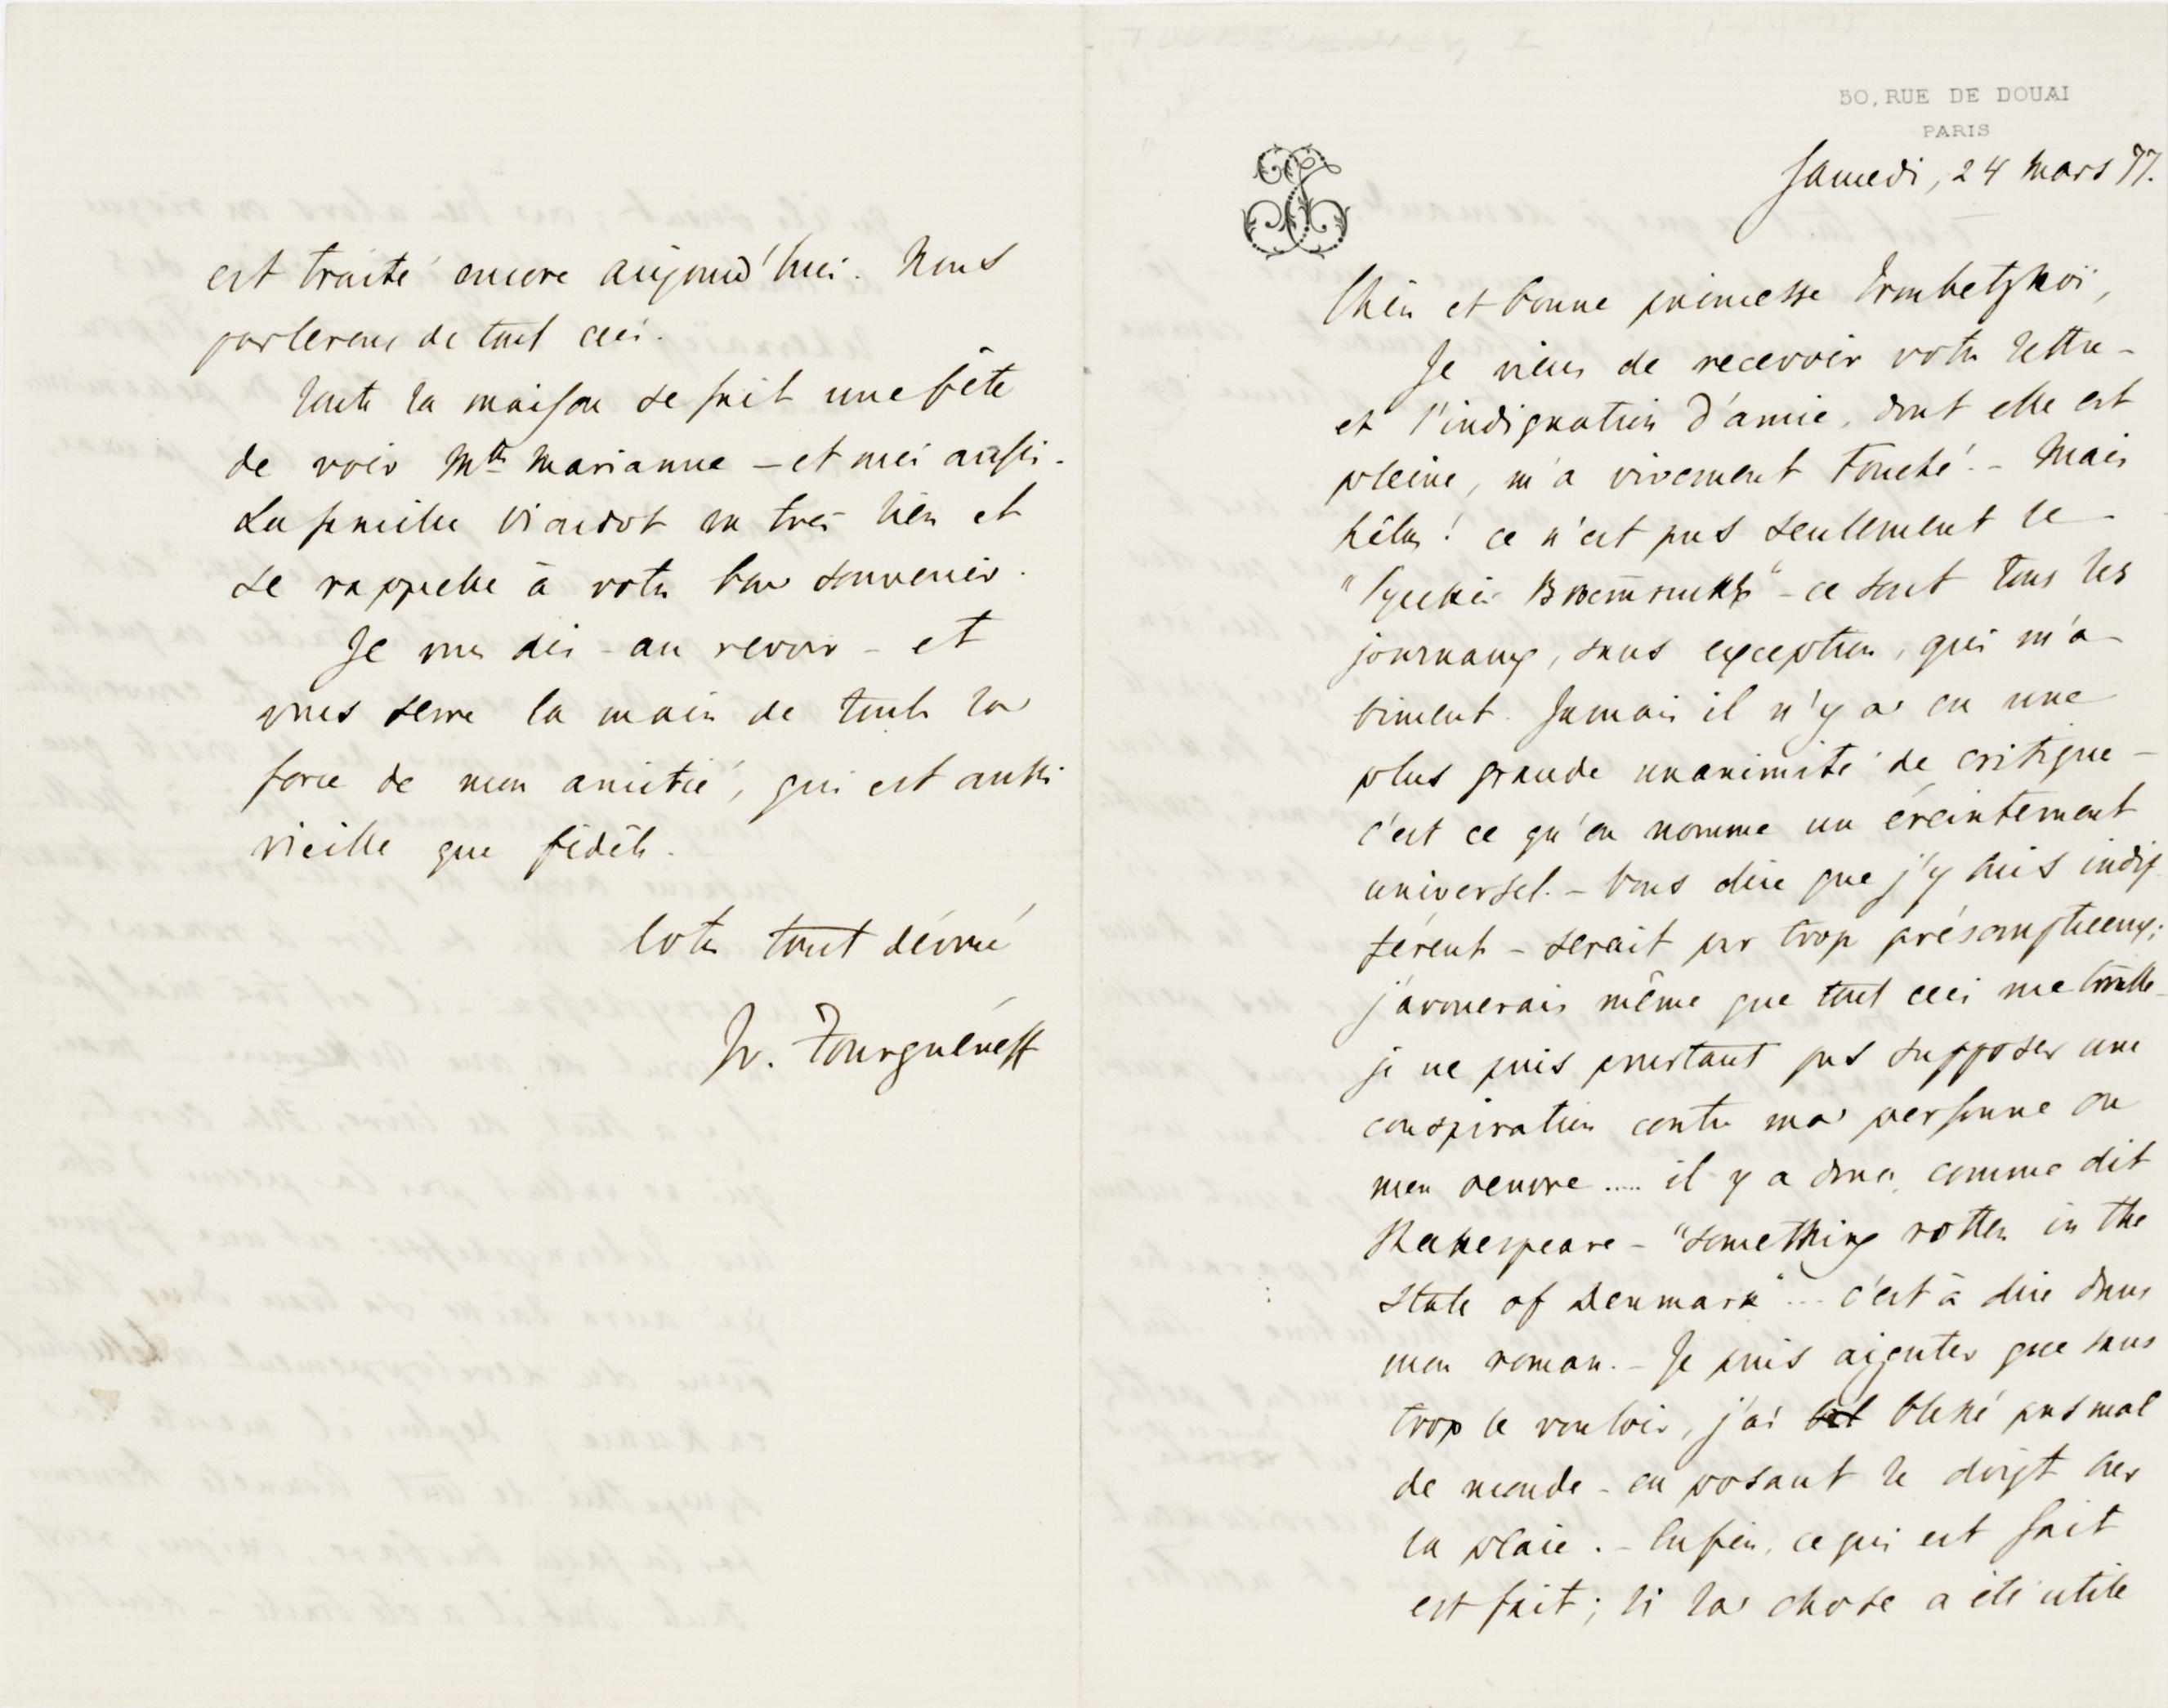 50, RUE DE DOUAI
PARIS
Samedi, 24 mars 77.
Chère et bonne princesse Troubetzkoï,
Je viens de recevoir votre lettre –
et l'indignation d'amie, dont elle est
pleine, m'a vivement touché. – Mais
hélas! ce n'est pas seulement le
"Русскiй Вѣстникъ" – ce sont tous les
journaux, sans exception, qui m'a-
biment. Jamais il n'y a eu une
plus grande unanimité de critique –
c'est ce qu'on nomme un éreintement
universel. – Vous dire que j'y suis indif-
férent – serait par trop présomptueux;
j'avouerais même que tout ceci me trouble –
je ne puis pourtant pas supposer une
conspiration contre ma personne ou
mon oeuvre ..... il y a donc, comme dit
Shakespeare – "something rotten in the
State of Denmark" ... c'est à dire dans
mon roman. – Je puis ajouter que sans
trop le vouloir, j'ai blessé pas mal
de monde – en posant le doigt sur
la plaie. – Enfin, ce qui est fait
est fait; si la chose a été utile
est traité encore aujourd'hui. Nous
parlerons de tout ceci.
Toute la maison se fait une fête
de voir Mlle Marianne – et moi aussi.
La famille Viardot va très bien et
se rappelle à votre bon souvenir.
Je vous dis – au revoir – et
vous serre la main de toute la
force de mon amitié, qui est aussi
vieille que fidèle.
Votre tout dévoué
Iv. Tourguéneff